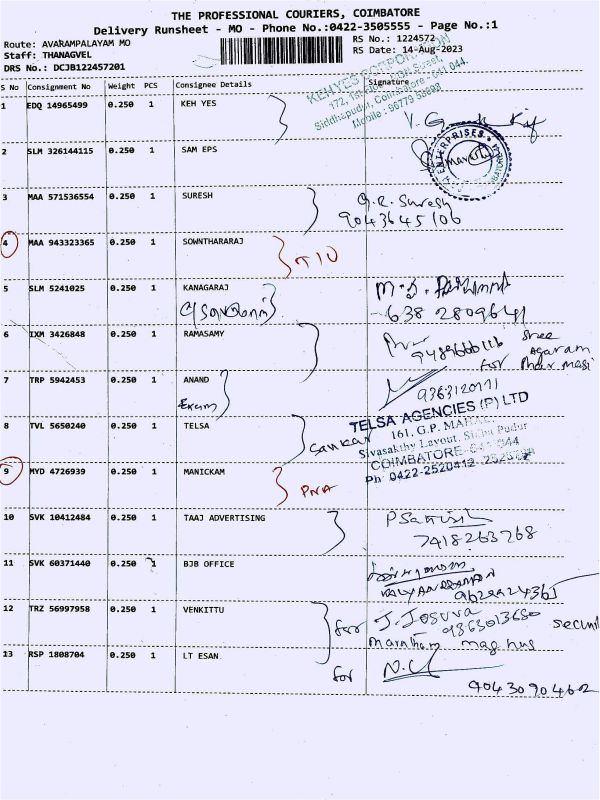 THE PROFESSIONAL COURIERS, COIMBATORE
Delivery Runsheet - MO - Phone No.:0422-3505555 - Page No.:1
Route: AVARAMPALAYAM MO
RS No.: 1224572
Staff: THANAGVEL
RS Date: 14-Aug-2023
DRS No.: DCJB122457201
S No Consignment No Weight PCS Consignee Details Signature
172,
Siddhapudur, Coimbatore - 641 044.
1 EDQ 14965499 0.250 1 KEH YES
ENTERPRISES
2 SLM 326144115 0.250 1 SAM EPS
3 MAA 571536554 0.250 1 SURESH G.R. Suresh
9043645106
4 MAA 943323365 0.250 1 SOWNTHARARAJ
5 SLM 5241025 0.250 1 KANAGARAJ
638 2809641
6 IXM 3426848 0.250 1 RAMASAMY
Sree
Agaram
for Pharmasi
7 TRP 5942453 0.250 1 ANAND 9363120171
8 TVL 5650240 0.250 1 TELSA Sankar
TELSA AGENCIES (P) LTD
161, G.P.
Sivasakthy Layout, Siddha Pudur
COIMBATORE - 641 044
Ph 0422-2520412
9 MYD 4726939 0.250 1 MANICKAM PNA
10 SVK 10412484 0.250 1 TAAJ ADVERTISING P Sathish
7418263768
11 SVK 60371440 0.250 1 BJB OFFICE
KALYANARAMAN
12 TRZ 56997958 0.250 1 VENKITTU for J. Josuva
9363013680
13 RSP 1808704 0.250 1 LT ESAN for
9043090462